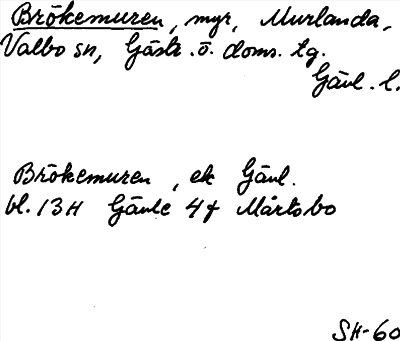 Brökemuren, myr, Murlanda,
Valbo sn, Gästr. ö. doms. tg.
Gävl. l.
Brökemuren, ek Gävl.
bl. 13H Gävle 4f Mårtsbo
SH-60